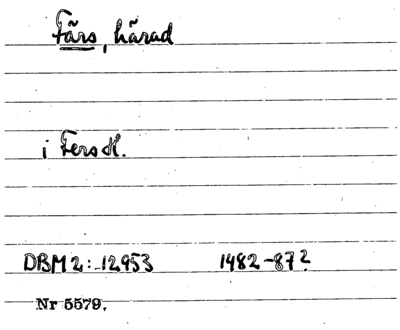 Färs, härad
i Fers H.
DBM 2: 12953 1482-87?
Nr 5579.